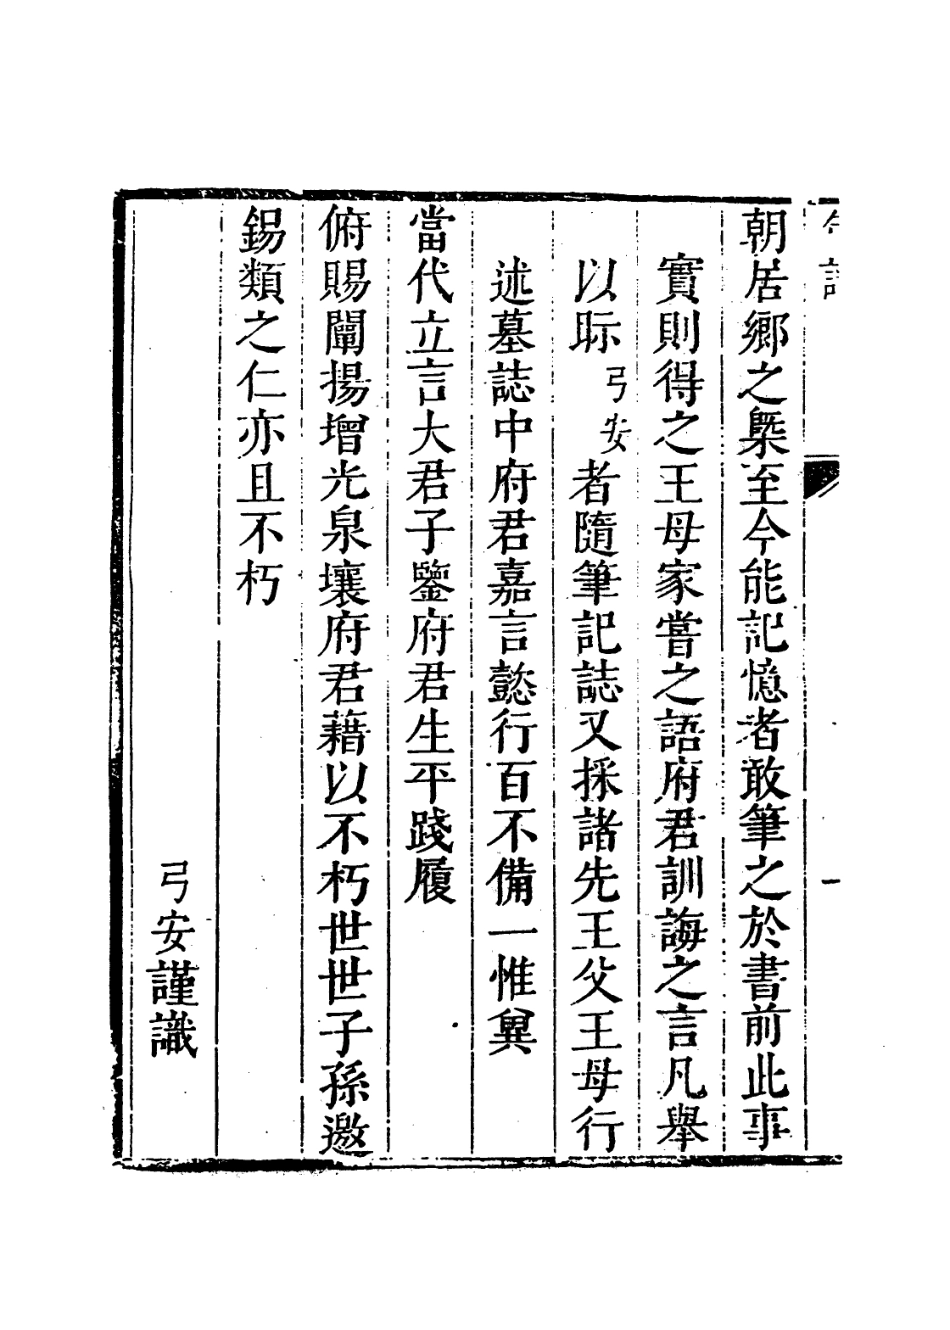 朝居鄉之槩至今能記憶者敢筆之於書前此事
實則得之王母家嘗之語府君訓誨之言凡舉
以眎弓安者隨筆記誌又採諸先王父王母行
述墓誌中府君嘉言懿行百不備一惟兾
當代立言大君子鑒府君生平踐履
俯賜闡揚增光泉壤府君藉以不朽世世子孫邀
錫類之仁亦且不朽
弓安謹識